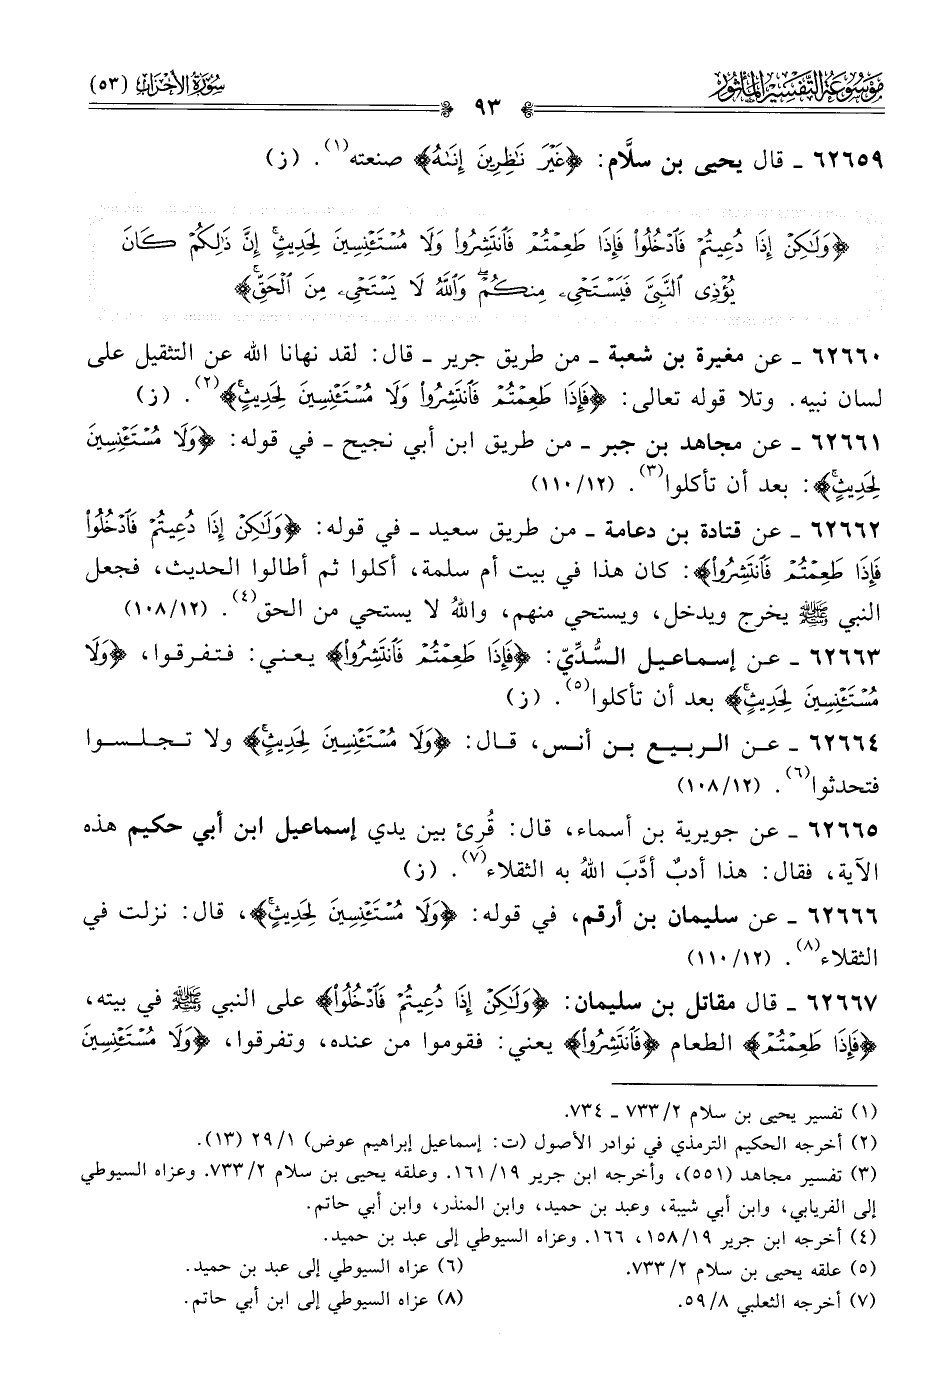 موسوعة التفسير المأثور
سورة الأحزاب (٥٣)
٩٣
٦٢٦٥٩ ـ قال يحيى بن سلَّام: ﴿غَيْرَ نَـٰظِرِينَ إِنَىٰهُ﴾ صنعته(١). (ز)
﴿وَلَـٰكِنْ إِذَا دُعِيتُمْ فَٱدْخُلُوا۟ فَإِذَا طَعِمْتُمْ فَٱنتَشِرُوا۟ وَلَا مُسْتَـْٔنِسِينَ لِحَدِيثٍ ۚ إِنَّ ذَٰلِكُمْ كَانَ
يُؤْذِى ٱلنَّبِىَّ فَيَسْتَحْىِۦ مِنكُمْ ۖ وَٱللَّهُ لَا يَسْتَحْىِۦ مِنَ ٱلْحَقِّ ۚ﴾
٦٢٦٦٠ ـ عن مغيرة بن شعبة ـ من طريق جرير ـ قال: لقد نهانا الله عن التثقيل على
لسان نبيه. وتلا قوله تعالى: ﴿فَإِذَا طَعِمْتُمْ فَٱنتَشِرُوا۟ وَلَا مُسْتَـْٔنِسِينَ لِحَدِيثٍ ۚ﴾(٢). (ز)
٦٢٦٦١ ـ عن مجاهد بن جبر ـ من طريق ابن أبي نجيح ـ في قوله: ﴿وَلَا مُسْتَـْٔنِسِينَ
لِحَدِيثٍ ۚ﴾: بعد أن تأكلوا(٣). (١١٠/١٢)
٦٢٦٦٢ ـ عن قتادة بن دعامة ـ من طريق سعيد ـ في قوله: ﴿وَلَـٰكِنْ إِذَا دُعِيتُمْ فَٱدْخُلُوا۟
فَإِذَا طَعِمْتُمْ فَٱنتَشِرُوا۟﴾: كان هذا في بيت أم سلمة، أكلوا ثم أطالوا الحديث، فجعل
النبي ﷺ يخرج ويدخل، ويستحي منهم، واللهُ لا يستحي من الحق(٤). (١٠٨/١٢)
٦٢٦٦٣ ـ عن إسماعيل السُّدِّيّ: ﴿فَإِذَا طَعِمْتُمْ فَٱنتَشِرُوا۟﴾ يعني: فتفرقوا، ﴿وَلَا
مُسْتَـْٔنِسِينَ لِحَدِيثٍ ۚ﴾ بعد أن تأكلوا(٥). (ز)
٦٢٦٦٤ ـ عن الربيع بن أنس، قال: ﴿وَلَا مُسْتَـْٔنِسِينَ لِحَدِيثٍ ۚ﴾ ولا تجلسوا
فتحدثوا(٦). (١٠٨/١٢)
٦٢٦٦٥ ـ عن جويرية بن أسماء، قال: قُرِئ بين يدي إسماعيل ابن أبي حكيم هذه
الآية، فقال: هذا أدبٌ أدَّبَ اللهُ به الثقلاء(٧). (ز)
٦٢٦٦٦ ـ عن سليمان بن أرقم، في قوله: ﴿وَلَا مُسْتَـْٔنِسِينَ لِحَدِيثٍ ۚ﴾، قال: نزلت في
الثقلاء(٨). (١١٠/١٢)
٦٢٦٦٧ ـ قال مقاتل بن سليمان: ﴿وَلَـٰكِنْ إِذَا دُعِيتُمْ فَٱدْخُلُوا۟﴾ على النبي ﷺ في بيته،
﴿فَإِذَا طَعِمْتُمْ﴾ الطعام ﴿فَٱنتَشِرُوا۟﴾ يعني: فقوموا من عنده، وتفرقوا، ﴿وَلَا مُسْتَـْٔنِسِينَ
(١) تفسير يحيى بن سلام ٧٣٣/٢ ـ ٧٣٤.
(٢) أخرجه الحكيم الترمذي في نوادر الأصول (ت: إسماعيل إبراهيم عوض) ٢٩/١ (١٣).
(٣) تفسير مجاهد (٥٥١)، وأخرجه ابن جرير ١٦١/١٩. وعلقه يحيى بن سلام ٧٣٣/٢. وعزاه السيوطي
إلى الفريابي، وابن أبي شيبة، وعبد بن حميد، وابن المنذر، وابن أبي حاتم.
(٤) أخرجه ابن جرير ١٥٨/١٩، ١٦٦. وعزاه السيوطي إلى عبد بن حميد.
(٥) علقه يحيى بن سلام ٧٣٣/٢. (٦) عزاه السيوطي إلى عبد بن حميد.
(٧) أخرجه الثعلبي ٥٩/٨. (٨) عزاه السيوطي إلى ابن أبي حاتم.